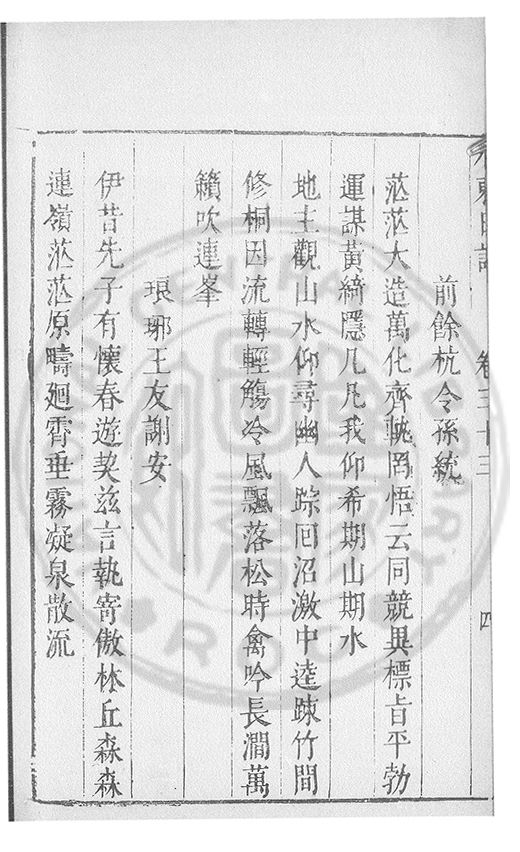 東日記 卷三十三 四
前餘杭令孫統
茫茫大造萬化齊軌罔悟云同競異標旨平勃
運謀黃綺隱几凡我仰希期山期水
地主觀山水仰尋幽人踪回沼激中逵踈竹間
修桐因流轉輕觴冷風飄落松時禽吟長澗萬
籟吹連峯
琅琊王友謝安
伊昔先子有懷春遊契兹言執寄傲林丘森森
連嶺茫茫原疇廻霄垂霧凝泉散流